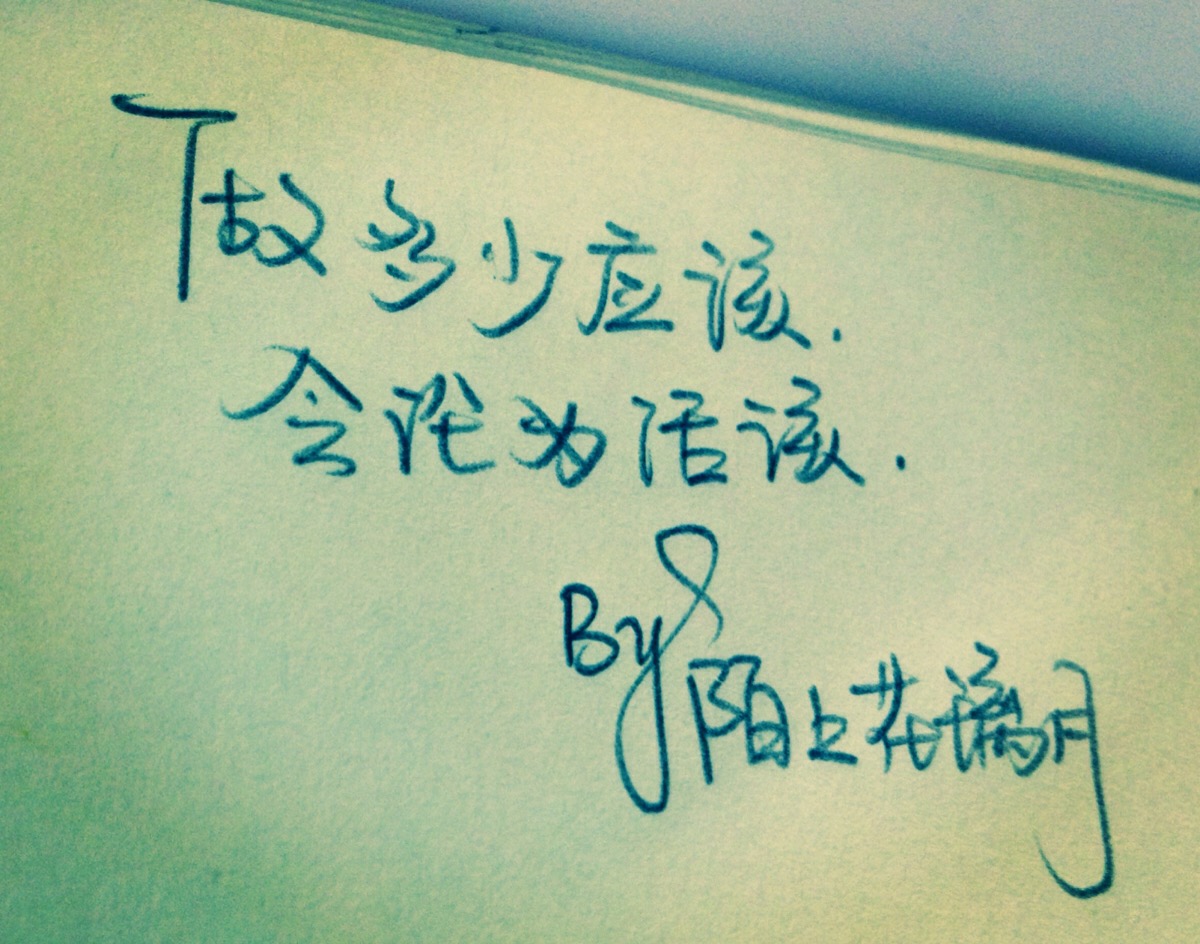 做多少应该.
会说为活该.
By 陌上花漓月